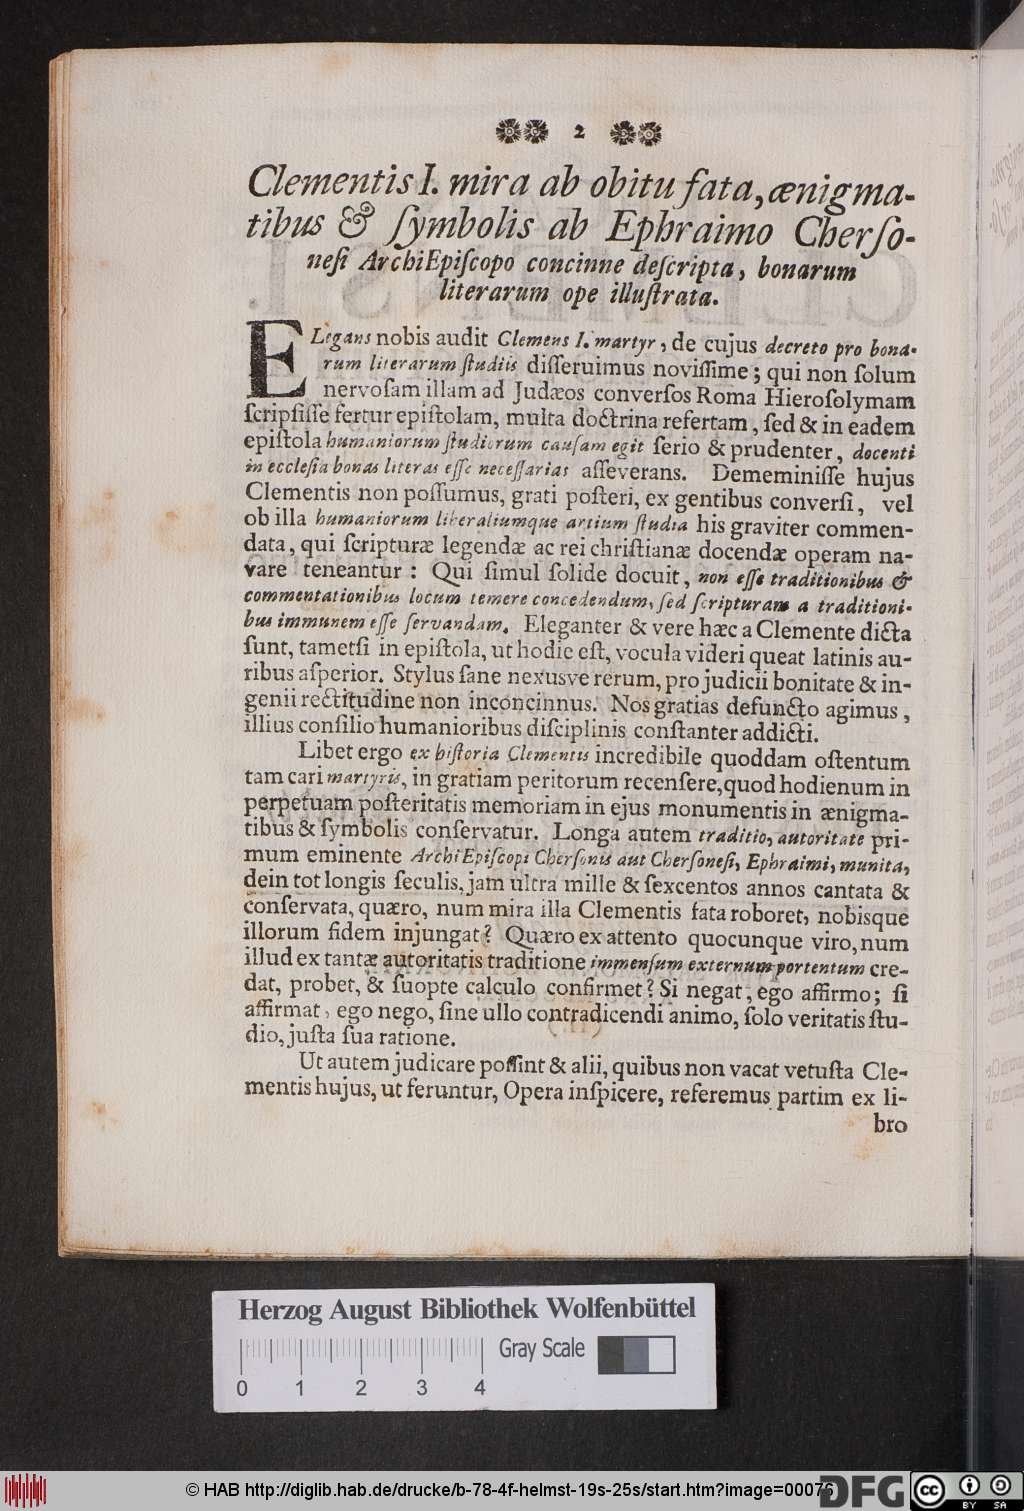 2
Clementis I. mira ab obitu fata, ænigma-
tibus & ſymbolis ab Ephraimo Cherſo-
neſi ArchiEpiſcopo concinne deſcripta, bonarum
literarum ope illuſtrata.
ELegans nobis audit Clemens I. martyr, de cujus decreto pro bona-
rum literarum ſtudiis diſſeruimus noviſſime; qui non ſolum
nervoſam illam ad Judæos converſos Roma Hieroſolymam
ſcripſiſſe fertur epiſtolam, multa doctrina refertam, ſed & in eadem
epiſtola humaniorum ſtudiorum cauſam egit ſerio & prudenter, docenti
in eccleſia bonas literas eſſe neceſſarias aſſeverans. Dememiniſſe hujus
Clementis non poſſumus, grati poſteri, ex gentibus converſi, vel
ob illa humaniorum liberaliumque artium ſtudia his graviter commen-
data, qui ſcripturæ legendæ ac rei chriſtianæ docendæ operam na-
vare teneantur: Qui ſimul ſolide docuit, non eſſe traditionibus &
commentationibus locum temere concedendum, ſed ſcripturam a traditioni-
bus immunem eſſe ſervandam. Eleganter & vere hæc a Clemente dicta
ſunt, tametſi in epiſtola, ut hodie eſt, vocula videri queat latinis au-
ribus aſperior. Stylus ſane nexusve rerum, pro judicii bonitate & in-
genii rectitudine non inconcinnus. Nos gratias defuncto agimus,
illius conſilio humanioribus diſciplinis conſtanter addicti.
Libet ergo ex hiſtoria Clementis incredibile quoddam oſtentum
tam cari martyris, in gratiam peritorum recenſere, quod hodienum in
perpetuam poſteritatis memoriam in ejus monumentis in ænigma-
tibus & ſymbolis conſervatur. Longa autem traditio, autoritate pri-
mum eminente ArchiEpiſcopi Cherſonis aut Cherſoneſi, Ephraimi, munita,
dein tot longis ſeculis, jam ultra mille & ſexcentos annos cantata &
conſervata, quæro, num mira illa Clementis fata roboret, nobisque
illorum fidem injungat? Quæro ex attento quocunque viro, num
illud ex tantæ autoritatis traditione immenſum externum portentum cre-
dat, probet, & ſuopte calculo confirmet? Si negat, ego affirmo; ſi
affirmat, ego nego, ſine ullo contradicendi animo, ſolo veritatis ſtu-
dio, juſta ſua ratione.
Ut autem judicare poſſint & alii, quibus non vacat vetuſta Cle-
mentis hujus, ut feruntur, Opera inſpicere, referemus partim ex li-
bro
Herzog August Bibliothek Wolfenbüttel
Gray Scale
0 1 2 3 4
© HAB http://diglib.hab.de/drucke/b-78-4f-helmst-19s-25s/start.htm?image=00076
DFG
cc BY SA